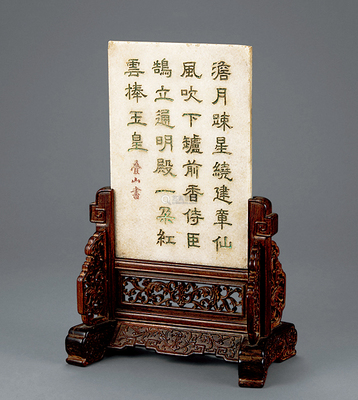 澹月疎星繞建章仙
風吹下鑪前香侍臣
鵠立通明殿一朶紅
雲捧玉皇
疊山書